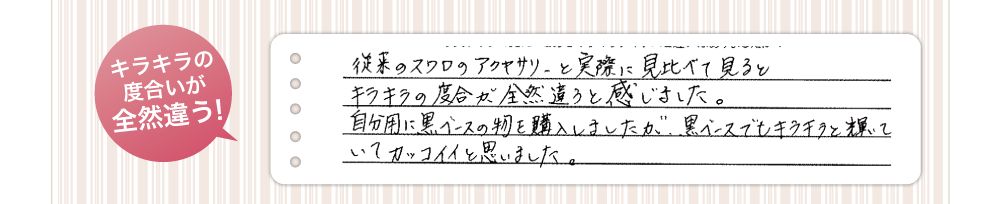 キラキラの
度合いが
全然違う!
従来のスワロのアクセサリーと実際に見比べて見ると
キラキラの度合が全然違うと感じました。
自分用に黒ベースの物を購入しましたが、黒ベースでもキラキラと輝いて
いてカッコイイと思いました。